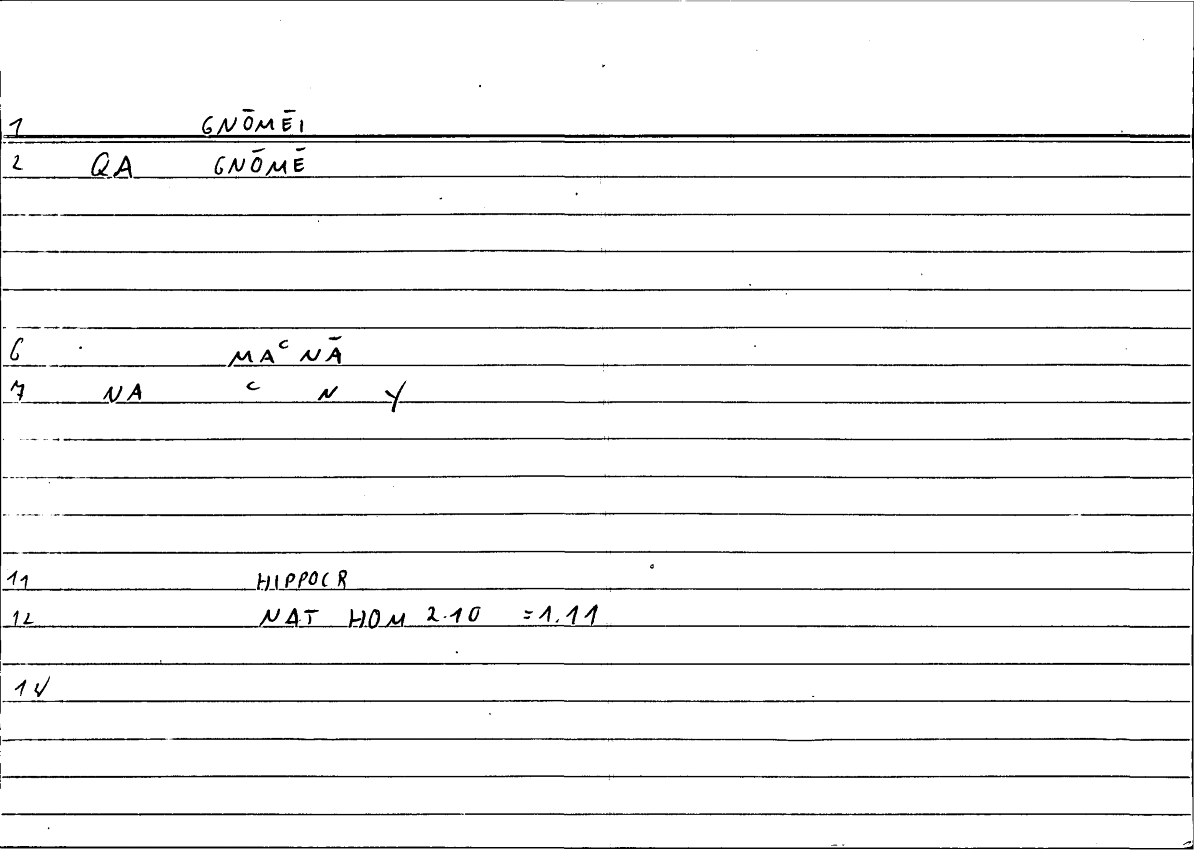 1 GNŌMĒI
2 QA GNŌMĒ
6 MAᶜNĀ
7 NA ᶜ N Y
11 HIPPOCR
12 NAT HOM 2.10 =1.11
14